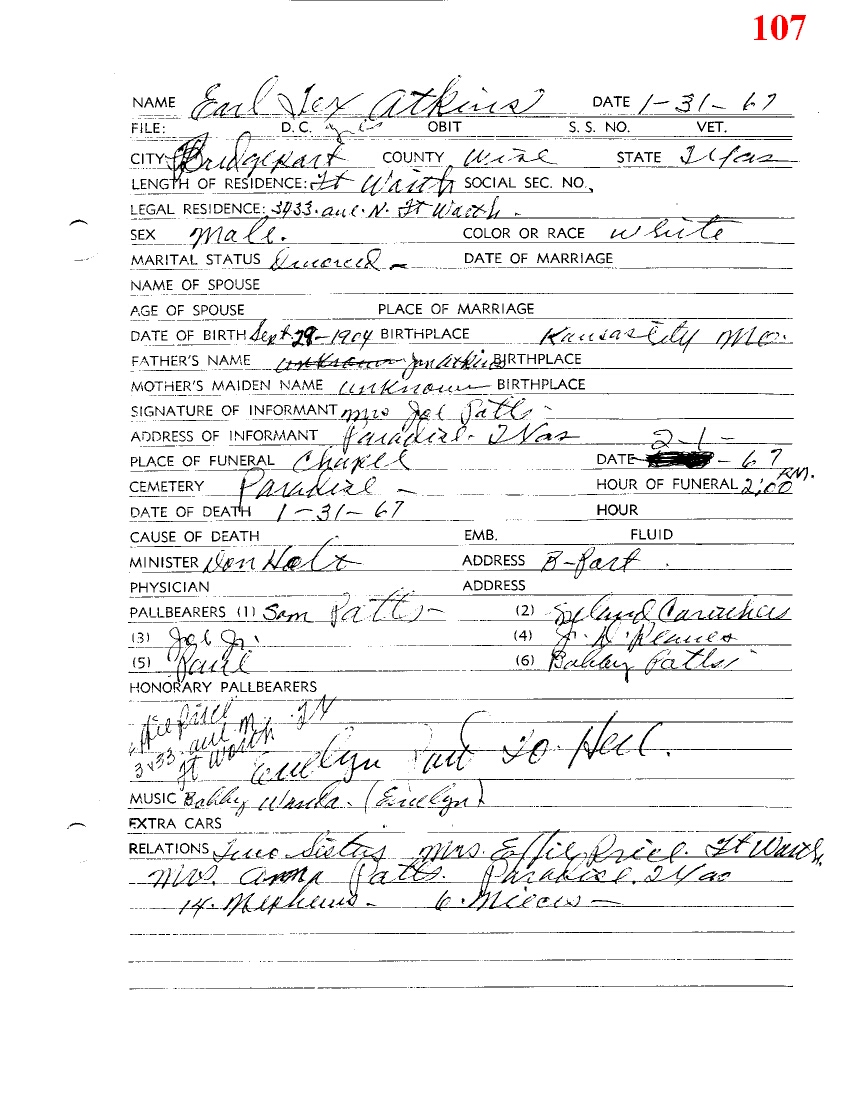 107
NAME Earl Tex Atkins DATE 1-31-67
FILE: D.C. OBIT S. S. NO. VET.
CITY Bridgeport COUNTY Wise STATE Texas
LENGTH OF RESIDENCE: Ft Worth SOCIAL SEC. NO.
LEGAL RESIDENCE: 3433. ave. N. Ft Worth.
SEX Male. COLOR OR RACE White
MARITAL STATUS Divorced - DATE OF MARRIAGE
NAME OF SPOUSE
AGE OF SPOUSE PLACE OF MARRIAGE
DATE OF BIRTH Sept. 29-1904 BIRTHPLACE Kansas City Mo.
FATHER'S NAME unknown Jon Atkins BIRTHPLACE
MOTHER'S MAIDEN NAME unknown BIRTHPLACE
SIGNATURE OF INFORMANT Mrs Joe Patts -
ADDRESS OF INFORMANT Paradise - Texas
PLACE OF FUNERAL Chapel DATE 2-1-67
CEMETERY Paradise - HOUR OF FUNERAL 2:00 P.M.
DATE OF DEATH 1-31-67 HOUR
CAUSE OF DEATH EMB. FLUID
MINISTER Don Holt ADDRESS B-Port
PHYSICIAN ADDRESS
PALLBEARERS (1) Sam Patts - (2) Leland Caruthers
(3) Joe Jr. (4) J. D.
(5) Paul (6) Bobby Patts
HONORARY PALLBEARERS
Effie Price
3433. ave N. TX
Ft Worth
Evelyn Paid To Here.
MUSIC Bobby Wanda. (Evelyn)
EXTRA CARS
RELATIONS Two Sisters Mrs. Effie Price. Ft Worth.
Mrs. Anna Patts. Paradise. Texas
14. Nephews - 6. Nieces -